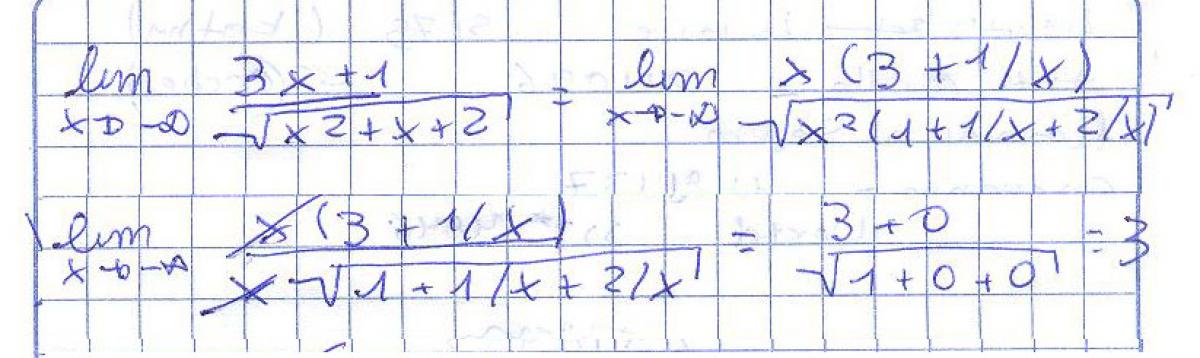 lim x→-∞ (3x+1)/√(x²+x+2) = lim x→-∞ x(3+1/x)/√(x²(1+1/x+2/x)
lim x→-∞ x(3+1/x)/(x√(1+1/x+2/x)) = (3+0)/√(1+0+0) = 3